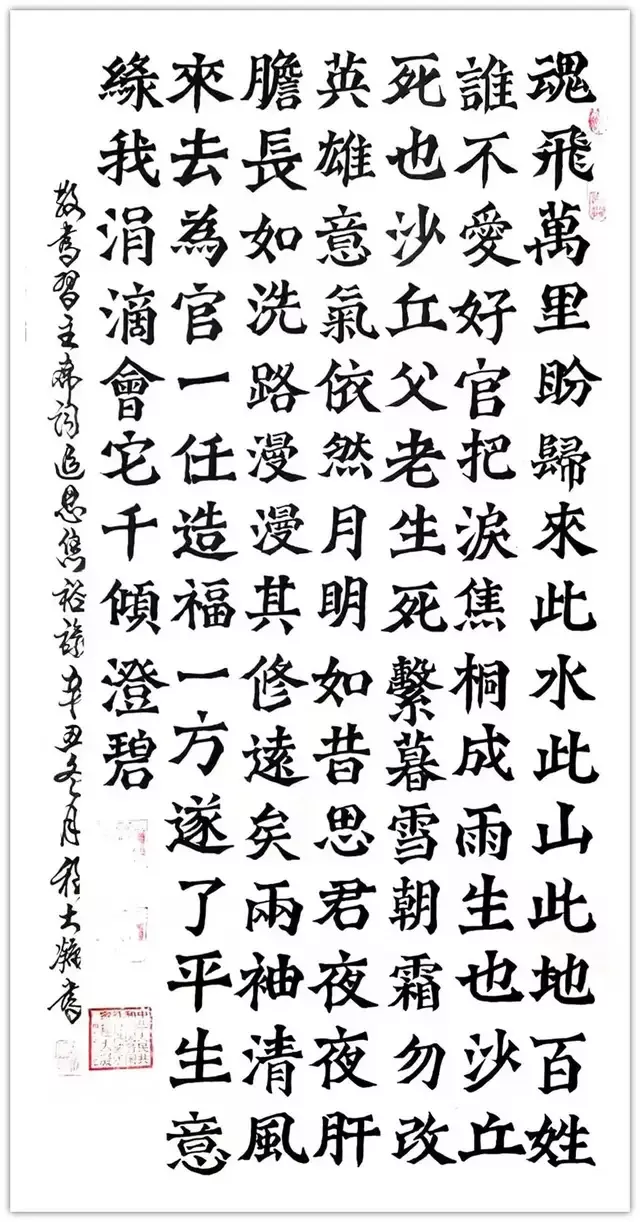 魂飛萬里盼歸來此水此山此地百姓
誰不愛好官把淚焦桐成雨生也沙丘
死也沙丘父老生死繫暮雪朝霜勿改
英雄意氣依然月明如昔思君夜夜肝
膽長如洗路漫漫其修遠矣兩袖清風
來去為官一任造福一方遂了平生意
綠我涓滴會宅千傾澄碧
敬書習主席詞追思焦裕祿辛丑冬月程大書